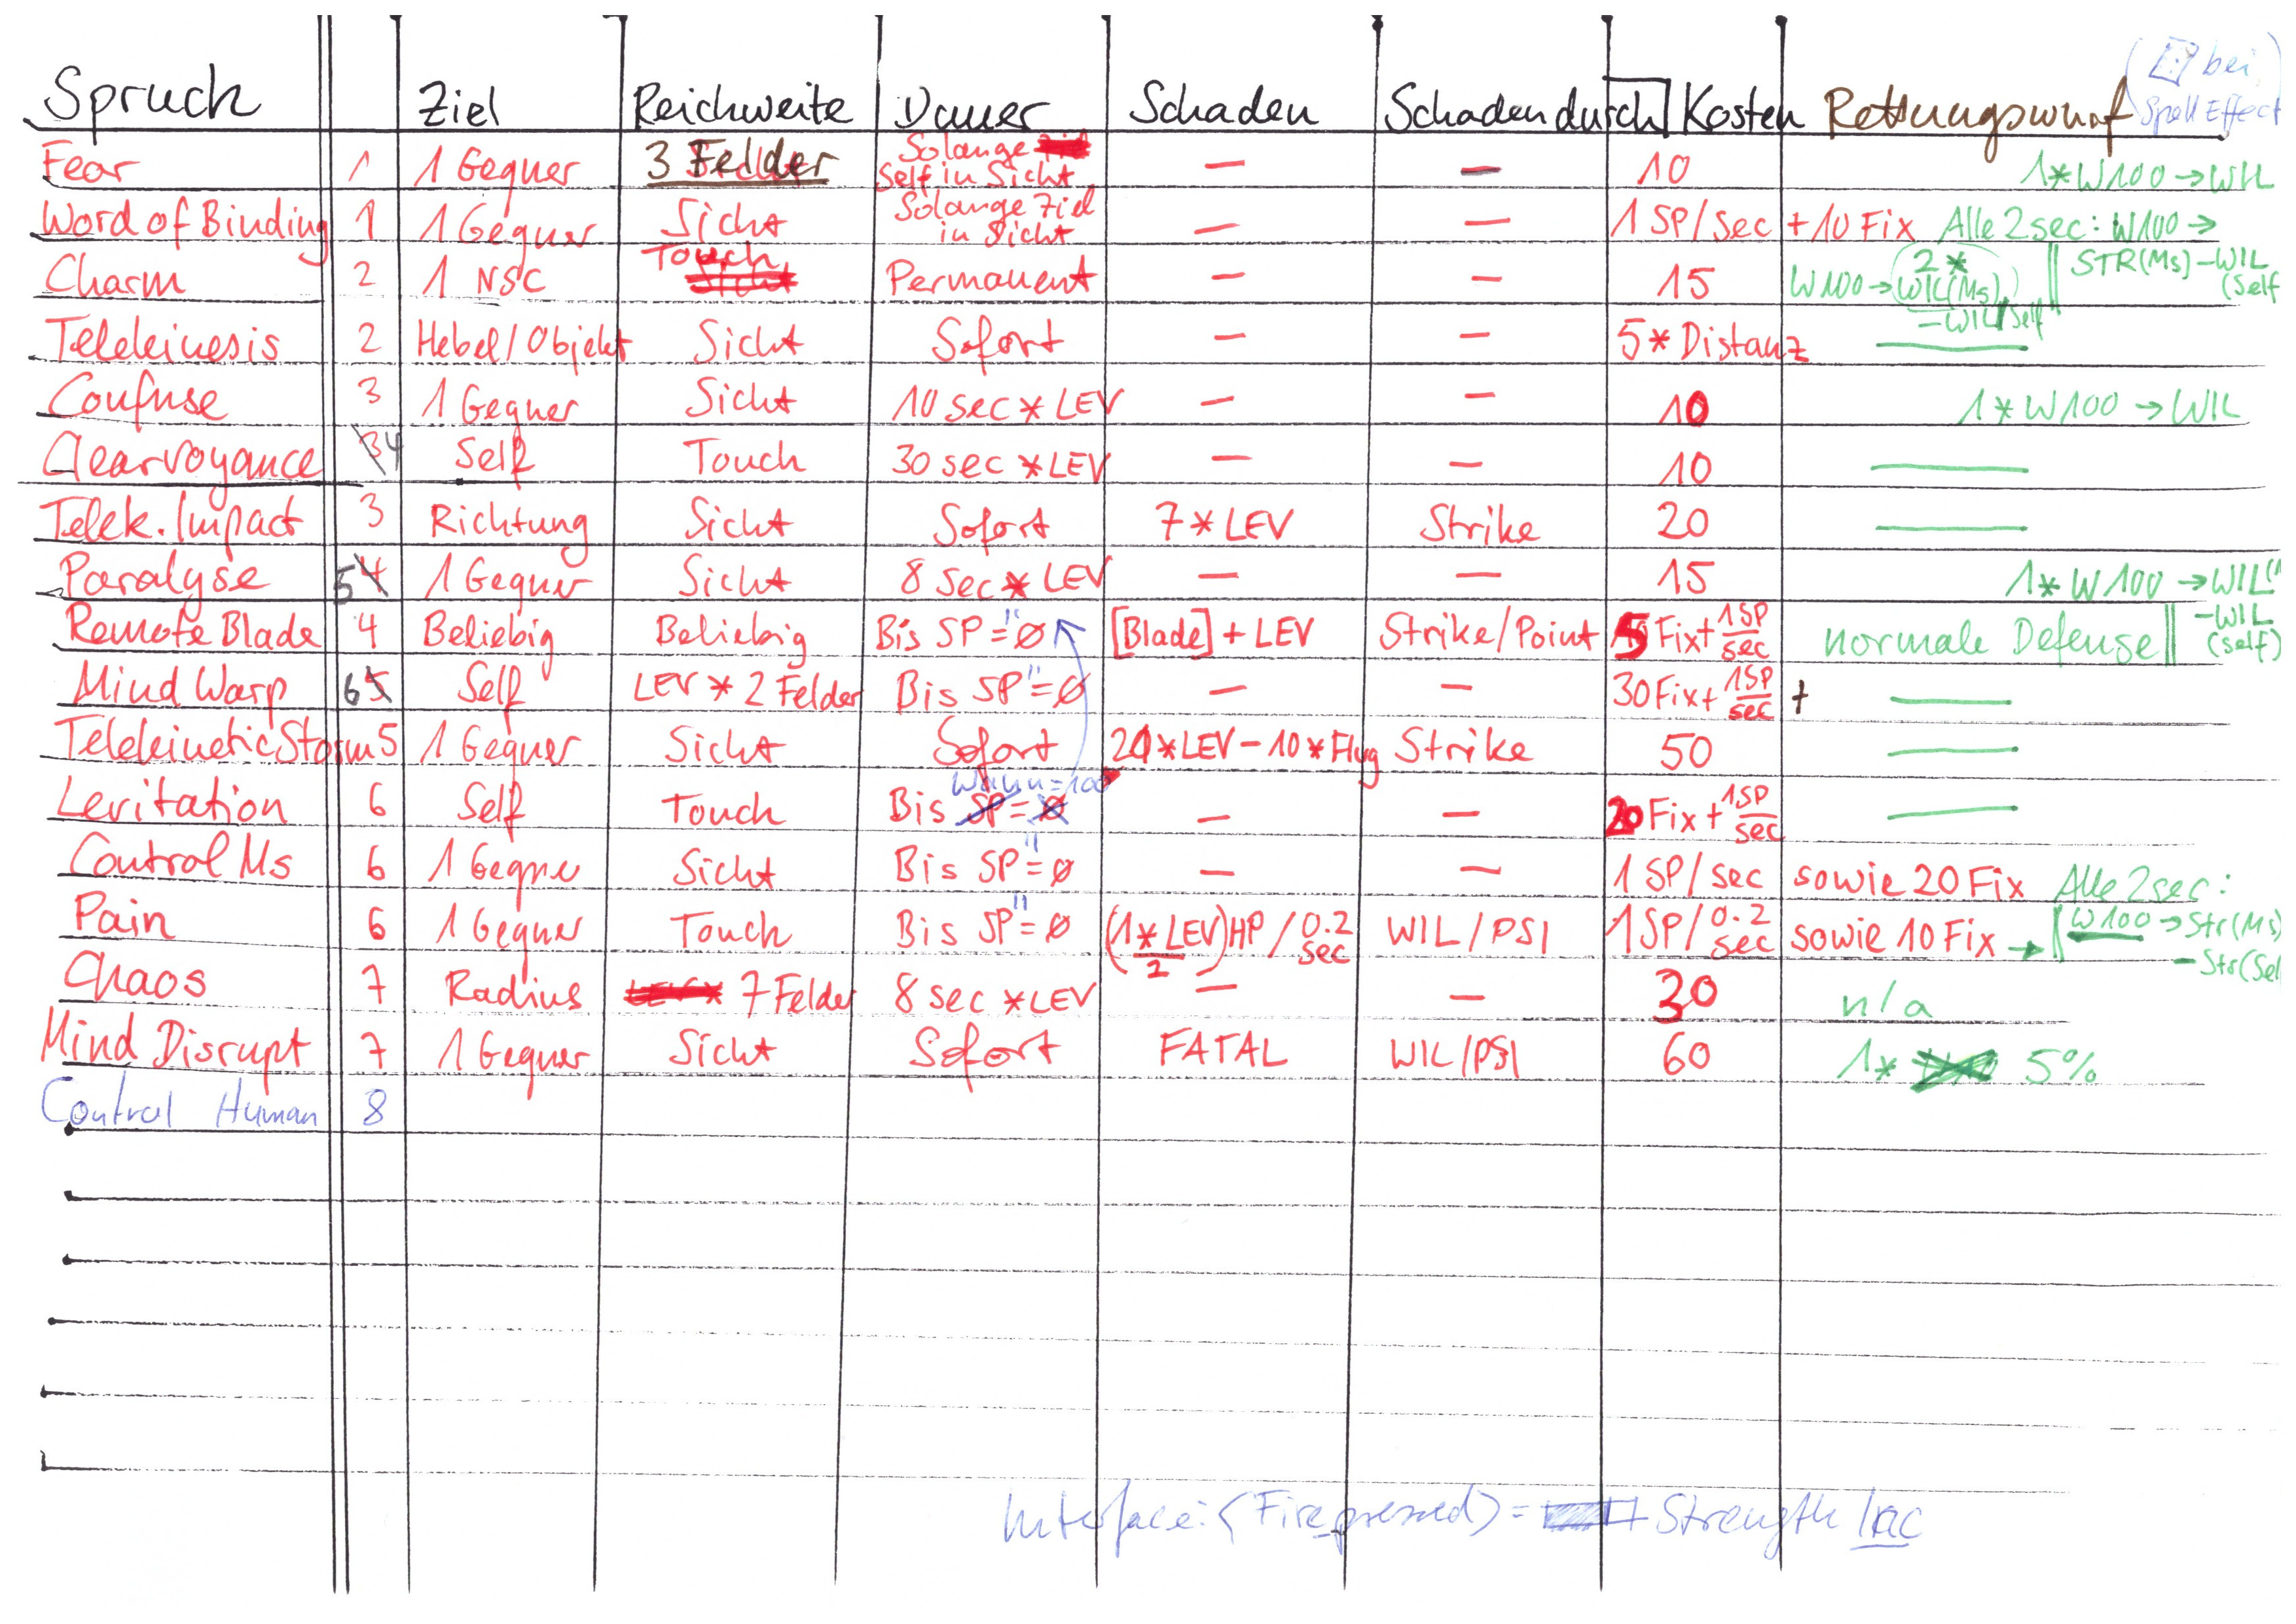 Spruch Ziel Reichweite Dauer Schaden Schaden durch Kosten Rettungswurf ( bei Spell Effect)
Fear 1 1 Gegner 3 Felder Solange Self in Sicht — — 10 1*W100→WIL
Word of Binding 1 1 Gegner Sicht Solange Ziel in Sicht — — 1 SP/Sec + 10 Fix Alle 2 sec: W100 → STR(Ms)-WIL (Self
Charm 2 1 NSC Touch Permanent — — 15 W100→ 2* WIL(Ms) -WIL/Self
Telekinesis 2 Hebel/Objekt Sicht Sofort — — 5*Distanz —
Confuse 3 1 Gegner Sicht 10 sec*LEV — — 10 1*W100→WIL
Clearvoyance 4 Self Touch 30 sec*LEV — — 10 —
Telek. Impact 3 Richtung Sicht Sofort 7*LEV Strike 20 —
Paralyse 5 1 Gegner Sicht 8 Sec*LEV — — 15 1*W100→WIL
Remote Blade 4 Beliebig Beliebig Bis SP"=Ø [Blade]+LEV Strike/Point 5 Fix+1SP/sec normale Defense -WIL (self)
Mind Warp 6 Self LEV*2 Felder Bis SP"=Ø — — 30 Fix+1SP/sec + —
Telekinetic Storm 5 1 Gegner Sicht Sofort LEV-10*Flug Strike 50 —
Wahn=100
Levitation 6 Self Touch Bis SP=Ø — — 20 Fix+1SP/sec —
Control Ms 6 1 Gegne Sicht Bis SP"=Ø — — 1 SP/sec sowie 20 Fix Alle 2 sec:
Pain 6 1 Gegner Touch Bis SP"=Ø (1*LEV/2)HP/0.2 sec WIL/PSI 1SP/0.2 sec sowie 10 Fix → W100→Str(Ms) -Str(Sel
Chaos 7 Radius 7 Felder 8 sec*LEV — — 30 n/a
Mind Disrupt 7 1 Gegner Sicht Sofort FATAL WIL/PSI 60 1* 5%
Control Human 8
Interface: (Fire pressed) = Strength